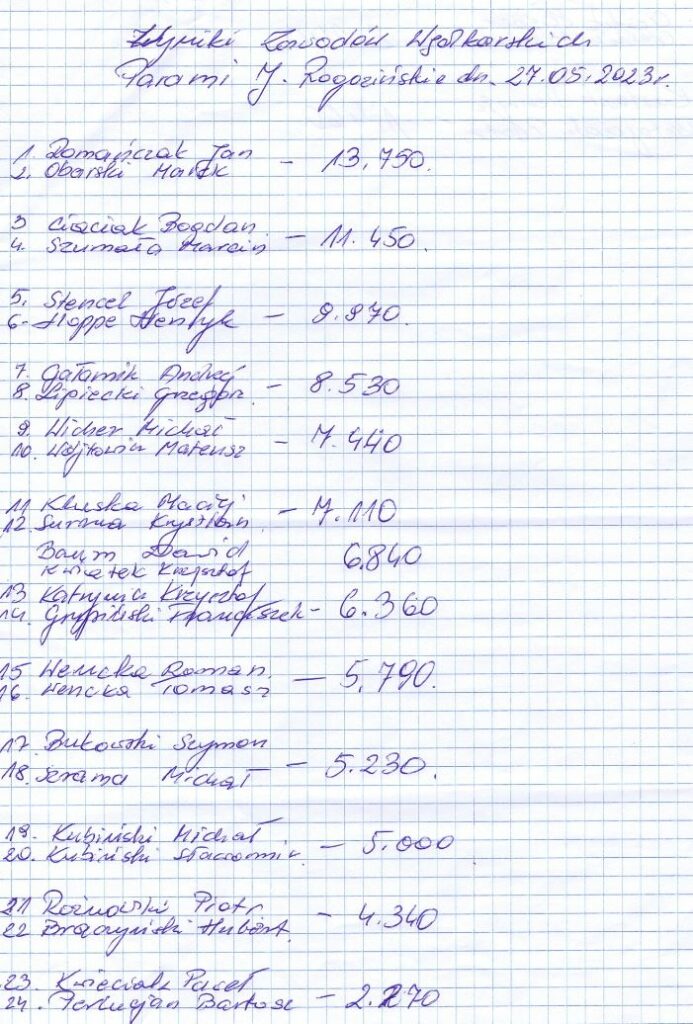 Wyniki Zawodów Wędkarskich
Parami J. Rogozińskie dn. 27.05.2023r.
1. Romańczak Jan
2. Obarski Marek - 13.750.
3 Ciściak Bogdan
4. Szumała Marcin - 11.450.
5. Stencel Józef
6. Hoppe Henryk - 9.970.
7. Gałamik Andrzej
8. Lipiecki Grzegorz - 8.530
9. Wicher Michał
10. Wójtowicz Mateusz - 7.440
11 Kluska Maciej
12. Surma Krystian - 7.110
Baum Dawid
Kwiatek Krzysztof 6.840
13 Krzysztof
14. Franciszek - 6.360
15 Wencka Roman
16. Wencka Tomasz - 5.790.
17. Bukowski Szymon
18. Michał - 5.230.
19. Kubiński Michał
20. Kubiński Sławomir - 5.000
21 Rożnowski Piotr
22 Brączyński Hubert - 4.340
23. Kwieciak Paweł
24. Bartosz - 2.270